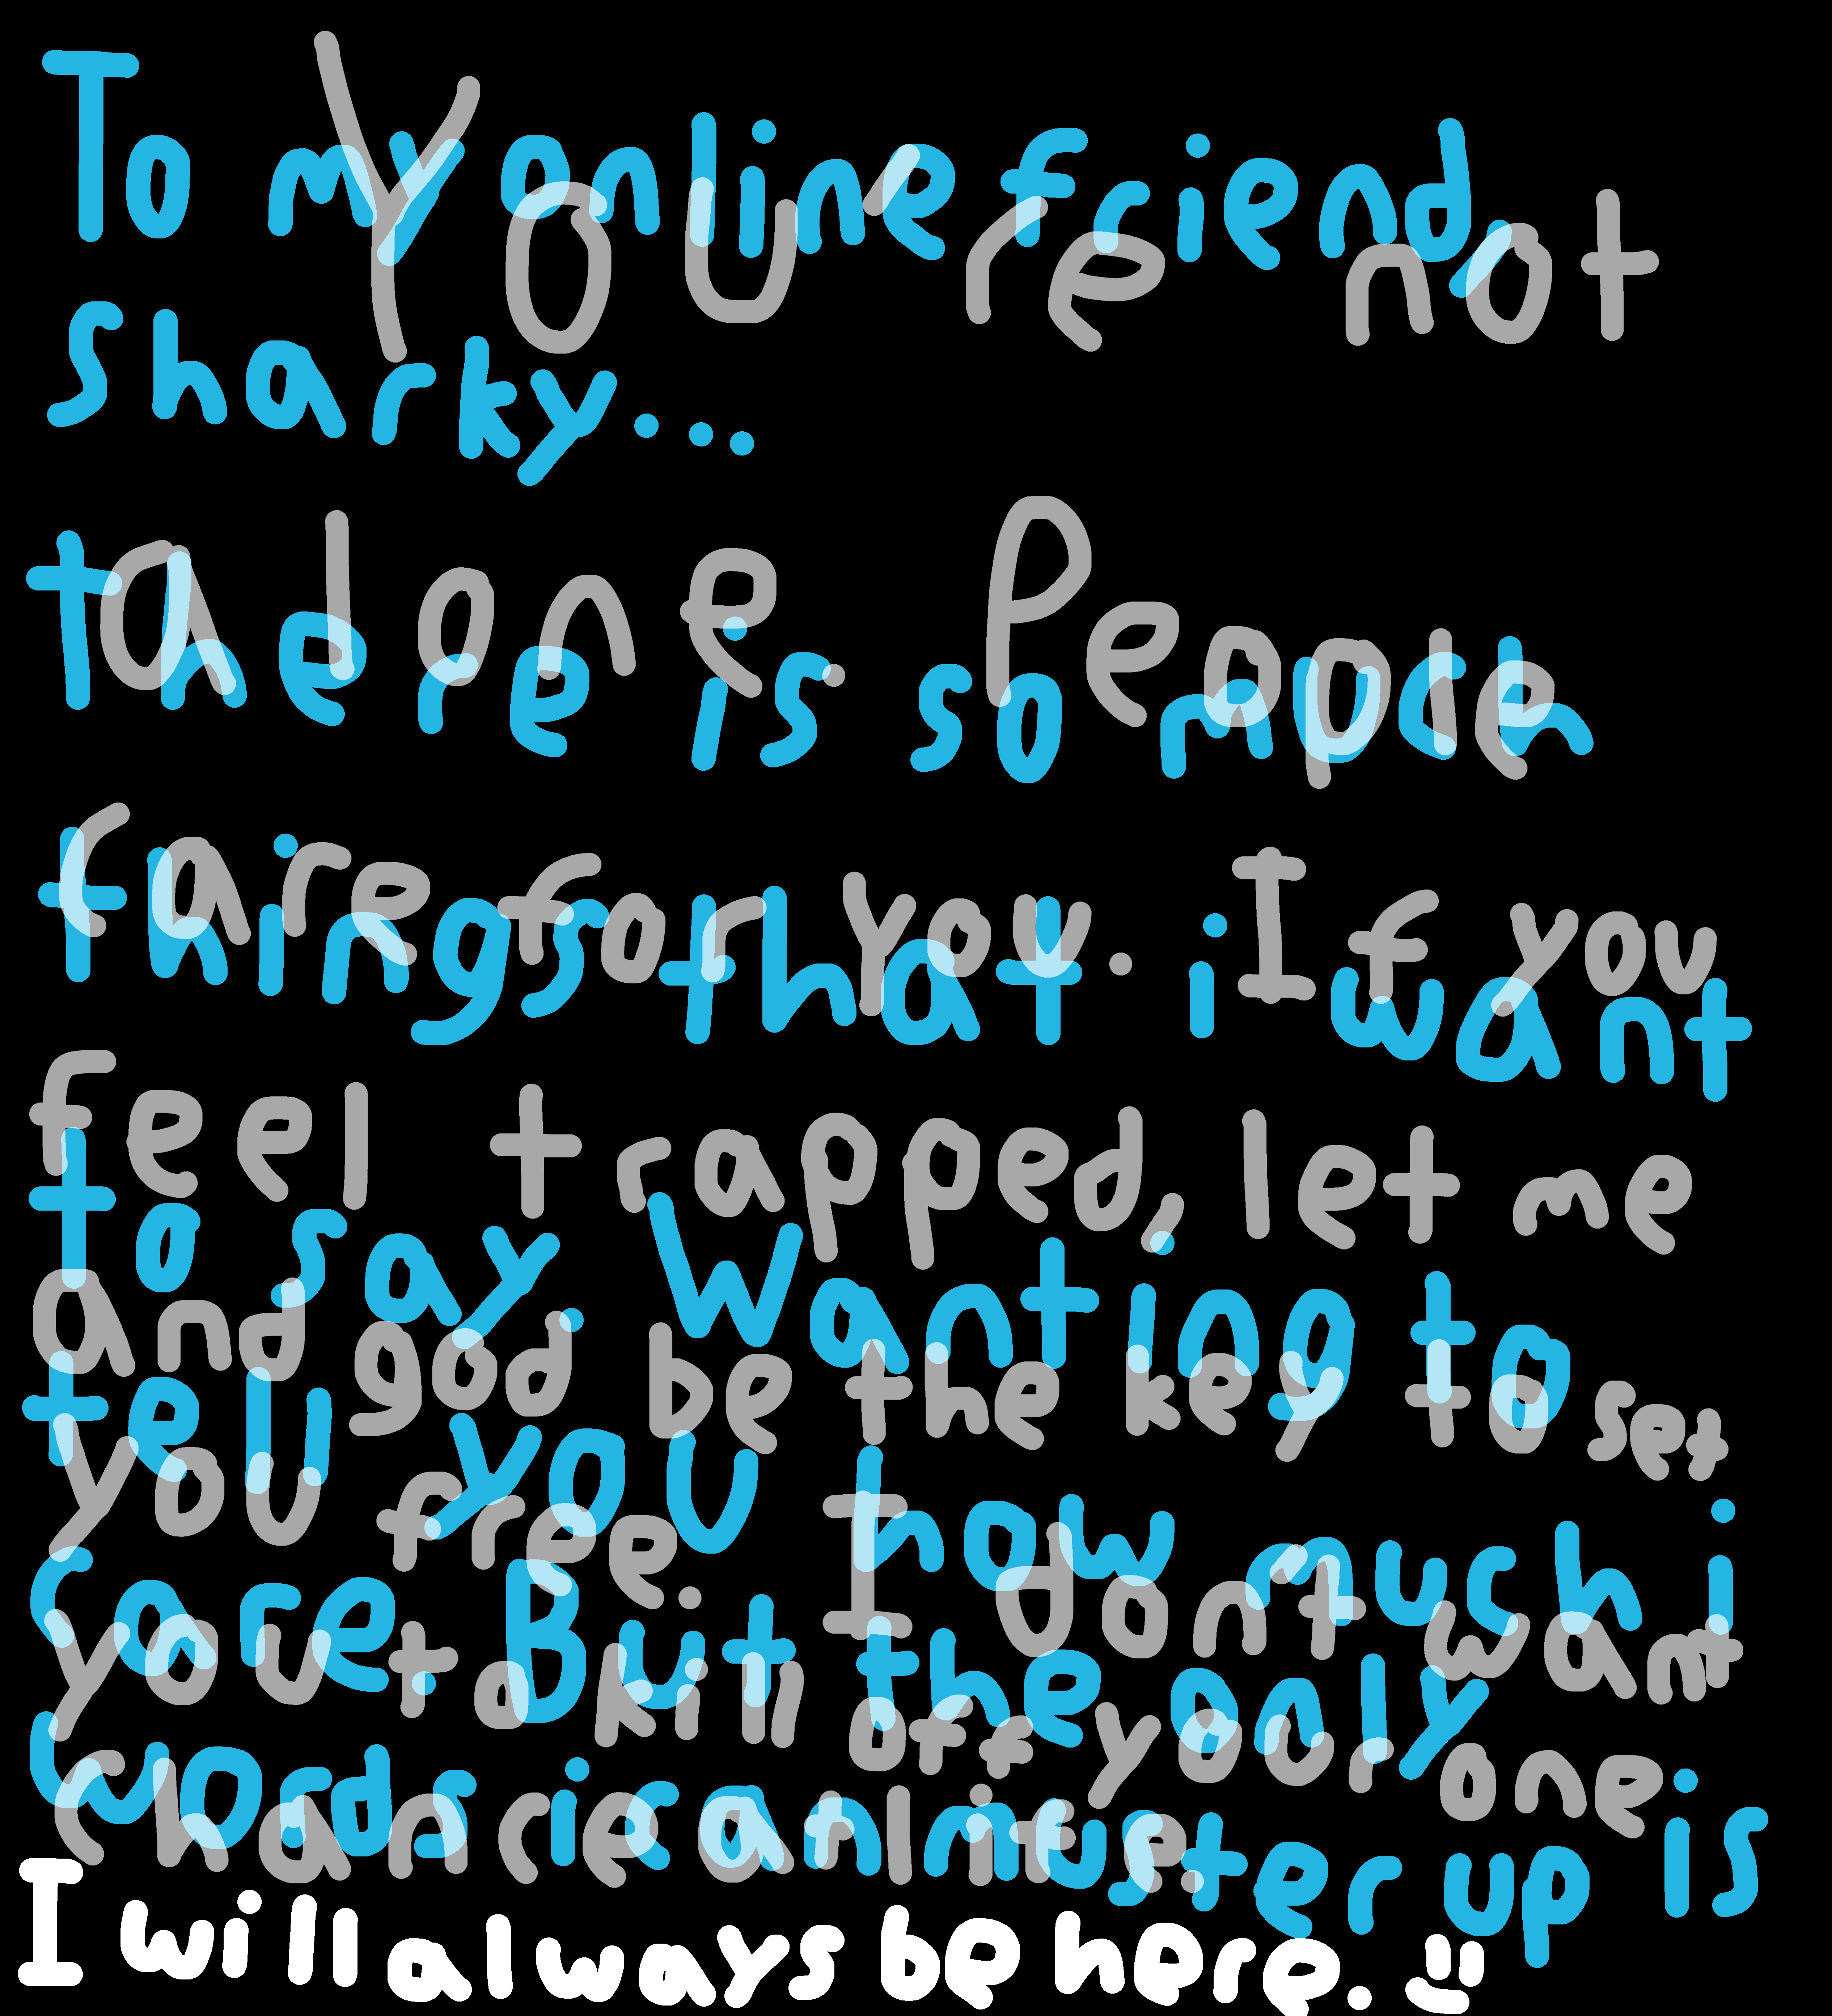 To my online friend,
sharky...
there is so much
things that i want
to say. Wanting to
tell you how much i
care. But the only
words i can muster up is
You're not
alone. People
care for you. If you
feel trapped, let me
and god be the key to set
you free. I don't want
you to kill off your one
chance at life.
I will always be here. :)